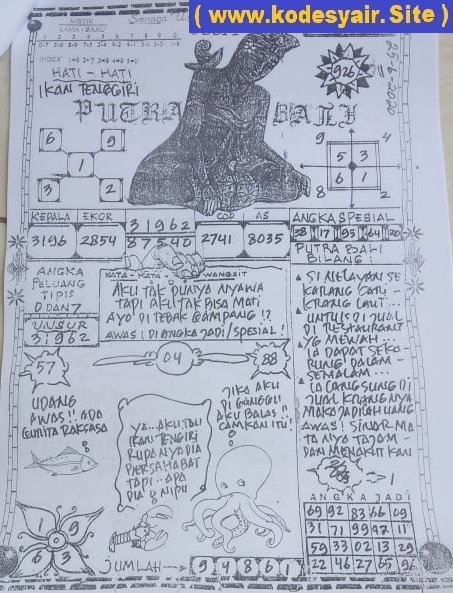 ( www.kodesyair.Site )
Semoga
MISTIK
LAMA - BARU
0 1 2 3 4 5 6 7 8 9
INDEX
HATI - HATI
IKAN TENGGIRI
PUTRA BALI
926
25-6-2020
6 9
1
3 2
9 4
5 3
6 1
8 2
KEPALA EKOR 31962 COP AS ANGKA SPESIAL
3196 2854 87540 2741 8035
58 17 93 64 20
PUTRA BALI
BILANG :
ANGKA
PELUANG
TIPIS
0 DAN 7
UNSUR
31962
KATA - KATA WANGSIT
AKU TAK PUNYA NYAWA
TAPI AKU TAK BISA MATI
AYO DI TEBAK GAMPANG !?
AWAS ! DI ANGKA JADI / SPESIAL !
SI NELAYAN SE
KARANG CARI -
KRANG LAUT ...
UNTUK DI JUAL
DI RESTAURANT
YG MEWAH ...
IA DAPAT SEKA
RUNG DALAM -
SEMALAM ...
IA LANGSUNG DI
JUAL KRANG NYA
MAKA JADILAH UANG
AWAS ! SINAR MA
TA NYA TAJAM -
DAN MENAKUT KAN
57
04
88
UDANG
AWAS !! ADA
GURITA RAKSASA
YA ... AKU TAU
IKAN TENGIRI
RUPANYA DIA
BERSAHABAT
TAPI .. APA
DIA DI NIPU
JIKA AKU
DI GANGGU
AKU BALAS !!
CAMKAN ITU !
1 9
6 3
JUMLAH → 94861
ANGKA JADI
69 92 83 66 09
31 71 99 47 11
59 33 02 13 29
22 46 27 65 96